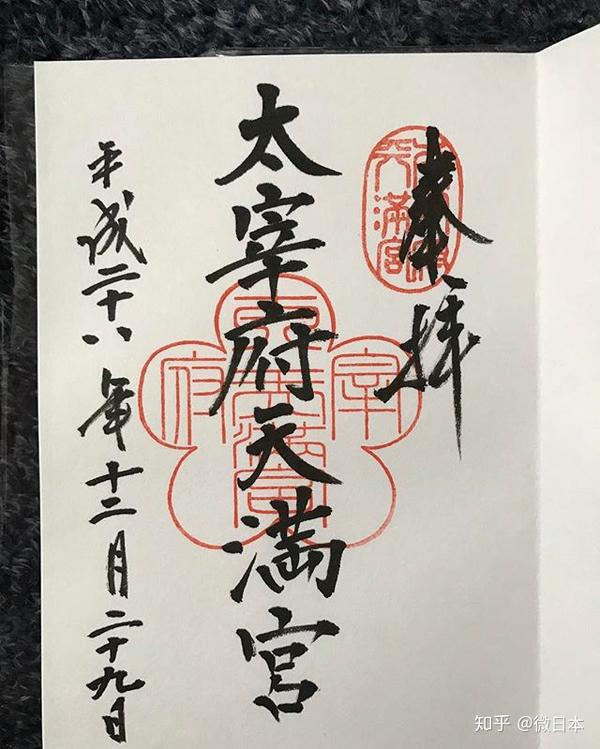 奉拝
太宰府天満宮
平成二十八年十二月二十九日
天満宮
宰
府
知乎 @微日本